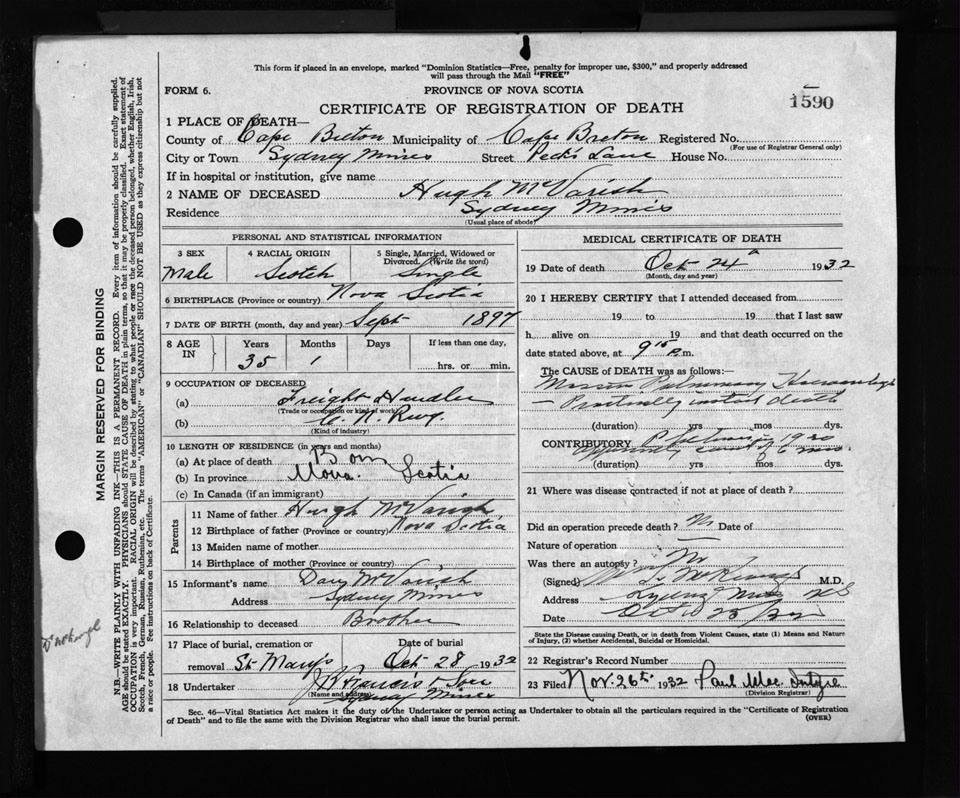 This form if placed in an envelope, marked "Dominion Statistics—Free, penalty for improper use, $300," and properly addressed
will pass through the Mail "FREE"
FORM 6.
PROVINCE OF NOVA SCOTIA
1590
CERTIFICATE OF REGISTRATION OF DEATH
1 PLACE OF DEATH—
County of Cape Breton Municipality of Cape Breton Registered No.
(For use of Registrar General only)
City or Town Sydney Mines Street Peck's Lane House No.
If in hospital or institution, give name
2 NAME OF DECEASED Hugh McVarish
Residence Sydney Mines
(Usual place of abode)
PERSONAL AND STATISTICAL INFORMATION
3 SEX
Male
4 RACIAL ORIGIN
Scotch
5 Single, Married, Widowed or
Divorced. (Write the word)
Single
6 BIRTHPLACE (Province or country) Nova Scotia
7 DATE OF BIRTH (month, day and year) Sept 1897
8 AGE IN
Years
35
Months
1
Days
If less than one day,
hrs. or min.
9 OCCUPATION OF DECEASED
(a) Freight Handler
(Trade or occupation or kind of work)
(b) C. N. Rwy.
(Kind of industry)
10 LENGTH OF RESIDENCE (in years and months)
(a) At place of death Born
(b) In province Nova Scotia
(c) In Canada (if an immigrant)
Parents
11 Name of father Hugh McVarish
12 Birthplace of father (Province or country) Nova Scotia
13 Maiden name of mother
14 Birthplace of mother (Province or country)
15 Informant's name McVarish
Address Sydney Mines
16 Relationship to deceased Brother
17 Place of burial, cremation or
removal St. Mary's
Date of burial
Oct 28 1932
18 Undertaker J B Francis & Son
(Name and address) Sydney Mines
MEDICAL CERTIFICATE OF DEATH
19 Date of death Oct 24 1932
(Month, day and year)
20 I HEREBY CERTIFY that I attended deceased from
19 to 19 that I last saw
h alive on 19 and that death occurred on the
date stated above, at 9 15 P.m.
The CAUSE of DEATH was as follows:—
Massive Pulmonary Haemorrhage
— Practically instant death
(duration) yrs mos dys.
CONTRIBUTORY in 1920
(duration) yrs mos dys.
21 Where was disease contracted if not at place of death?
Did an operation precede death? No Date of
Nature of operation
Was there an autopsy? No
(Signed) M.D.
Address Sydney Mines N S
Date
State the Disease causing Death, or in death from Violent Causes, state (1) Means and Nature
of Injury, (2) whether Accidental, Suicidal or Homicidal.
22 Registrar's Record Number
23 Filed Nov. 26th 1932 Paul
(Division Registrar)
Sec. 46—Vital Statistics Act makes it the duty of the Undertaker or person acting as Undertaker to obtain all the particulars required in the "Certificate of Registration
of Death" and to file the same with the Division Registrar who shall issue the burial permit.
(OVER)
MARGIN RESERVED FOR BINDING
N.B.—WRITE PLAINLY WITH UNFADING INK—THIS IS A PERMANENT RECORD. Every item of information should be carefully supplied.
AGE should be stated EXACTLY. PHYSICIANS should STATE CAUSE OF DEATH in plain terms, so that it may be properly classified. Exact statement of
OCCUPATION is very important. RACIAL ORIGIN will be described by stating to what people or race the deceased person belonged, whether English, Irish,
Scotch, French, German, Russian, Ruthenian, etc. The terms "AMERICAN" or "CANADIAN" SHOULD NOT BE USED as they express citizenship but not
a race or people. Fee instructions on back of Certificate.